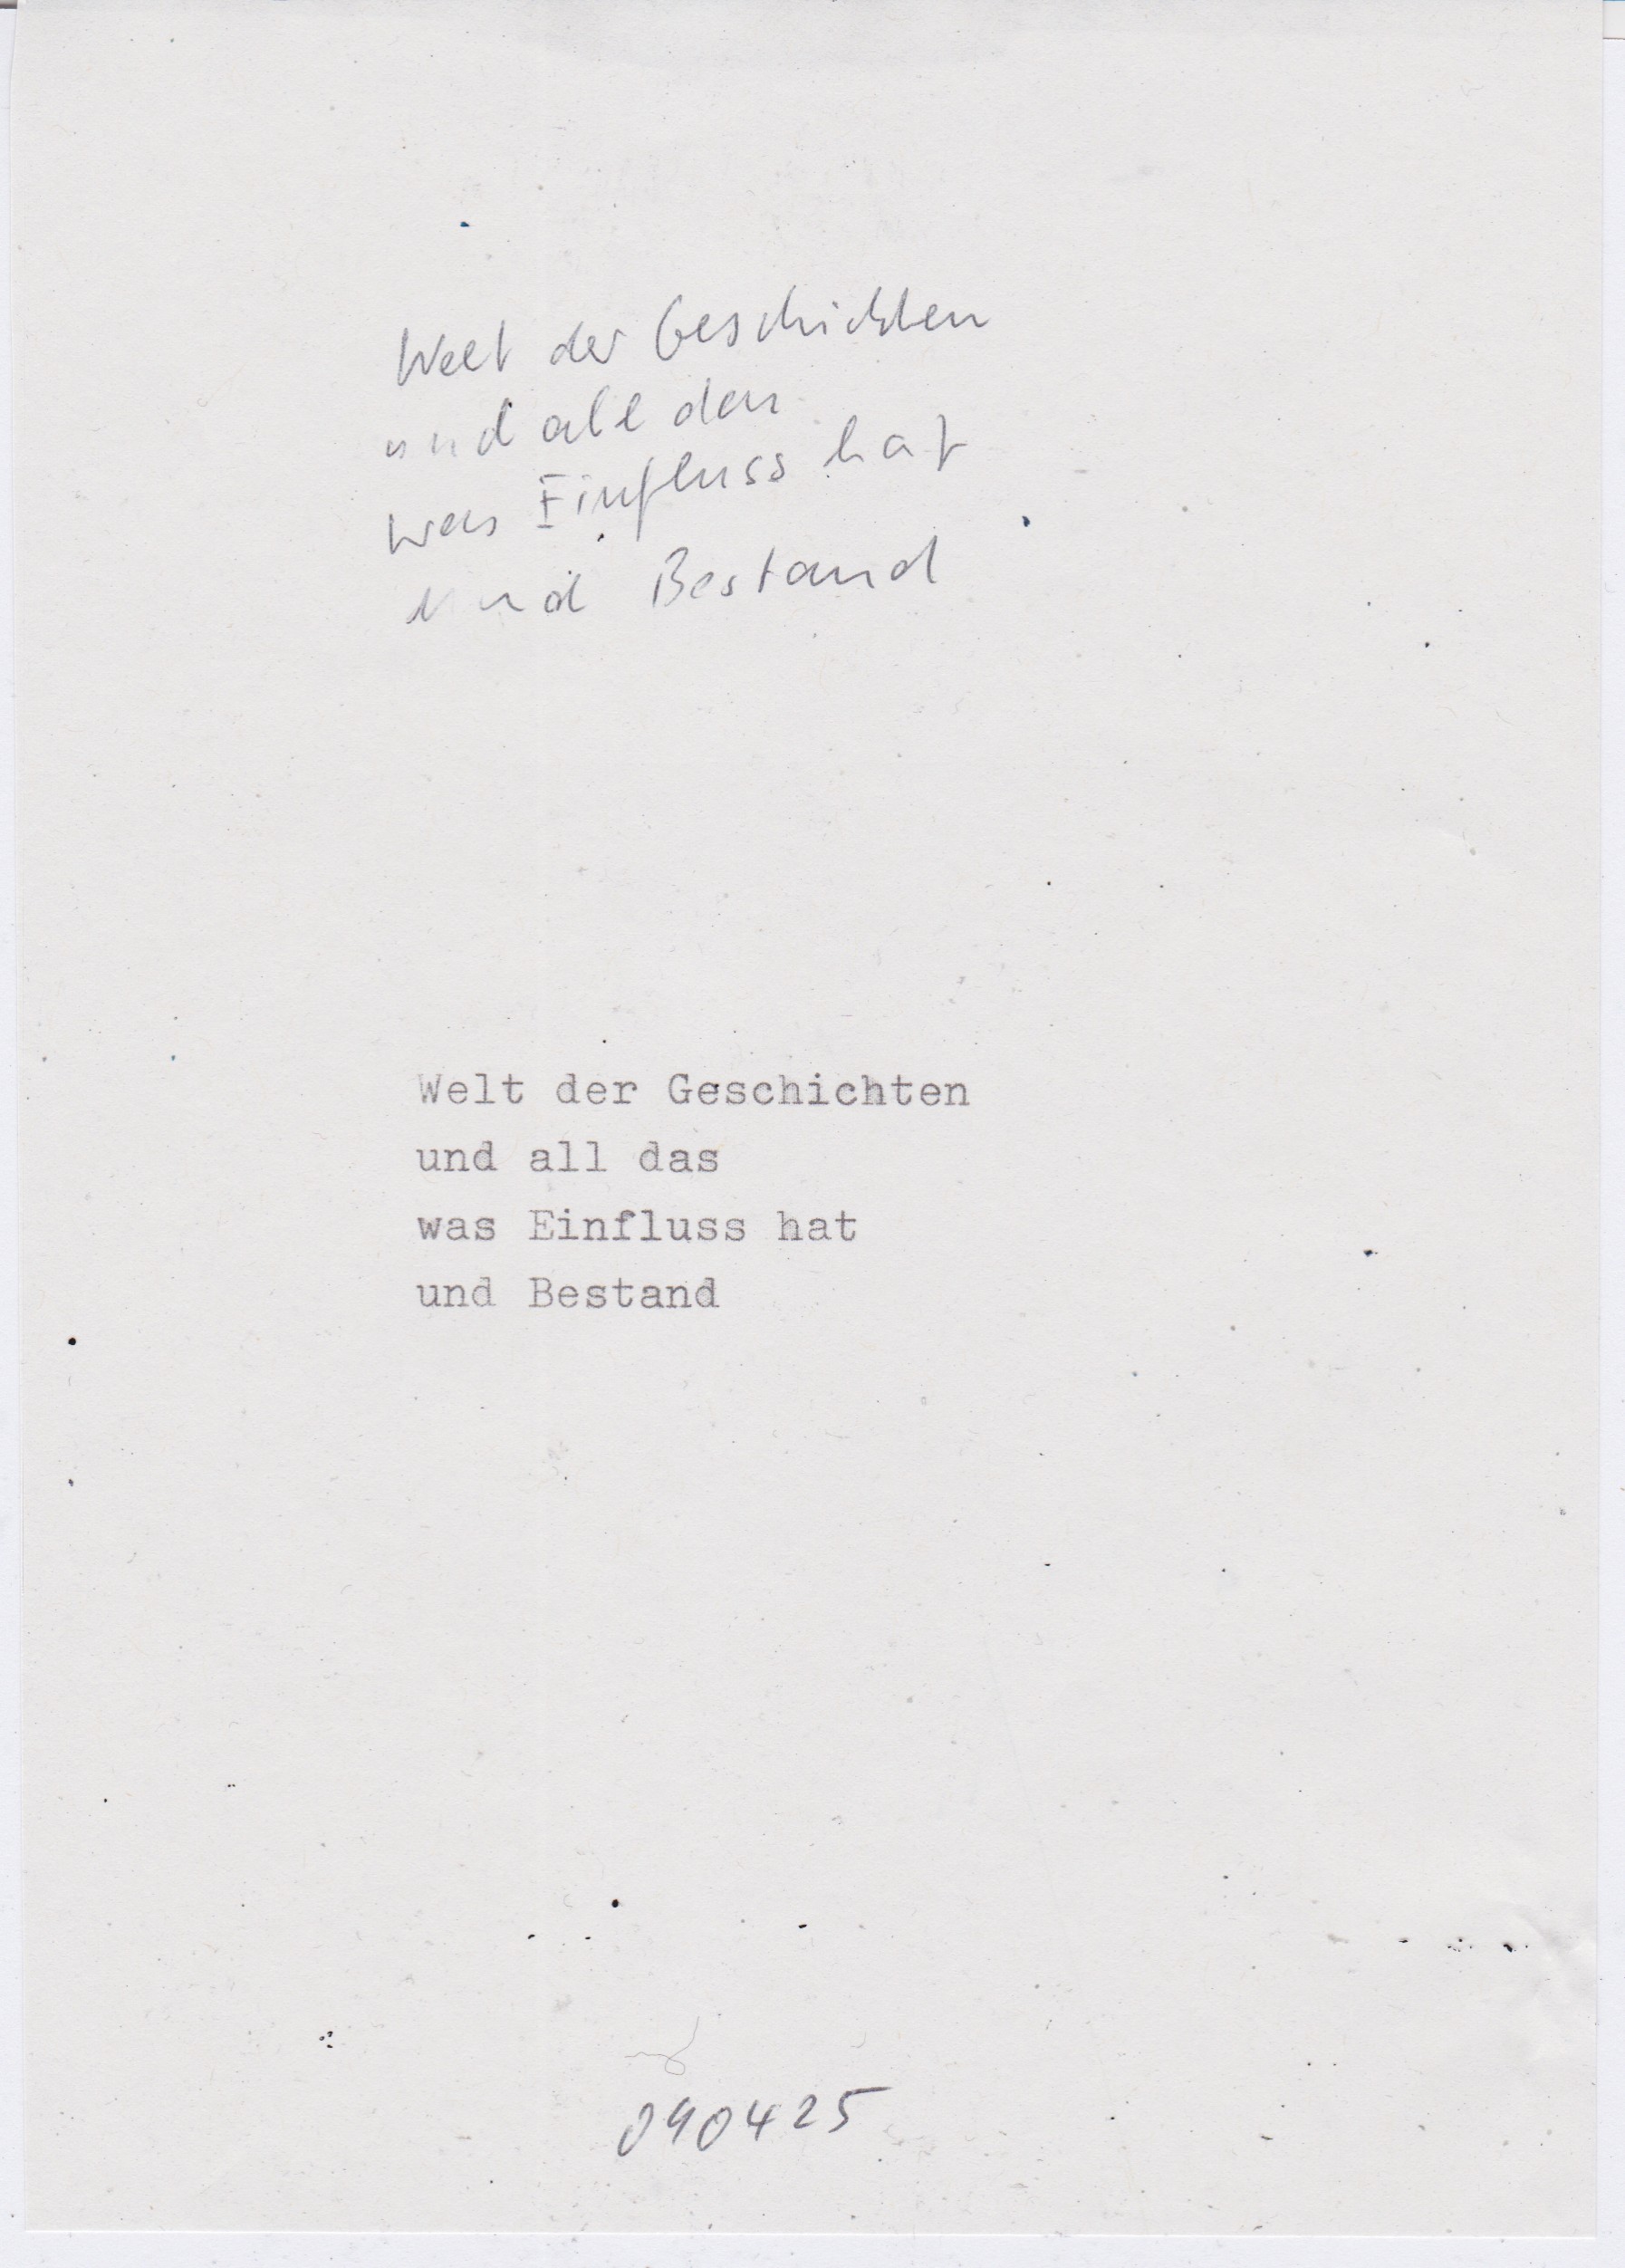 Welt der Geschichten
und all das
was Einfluss hat
und Bestand
Welt der Geschichten
und all das
was Einfluss hat
und Bestand
090425